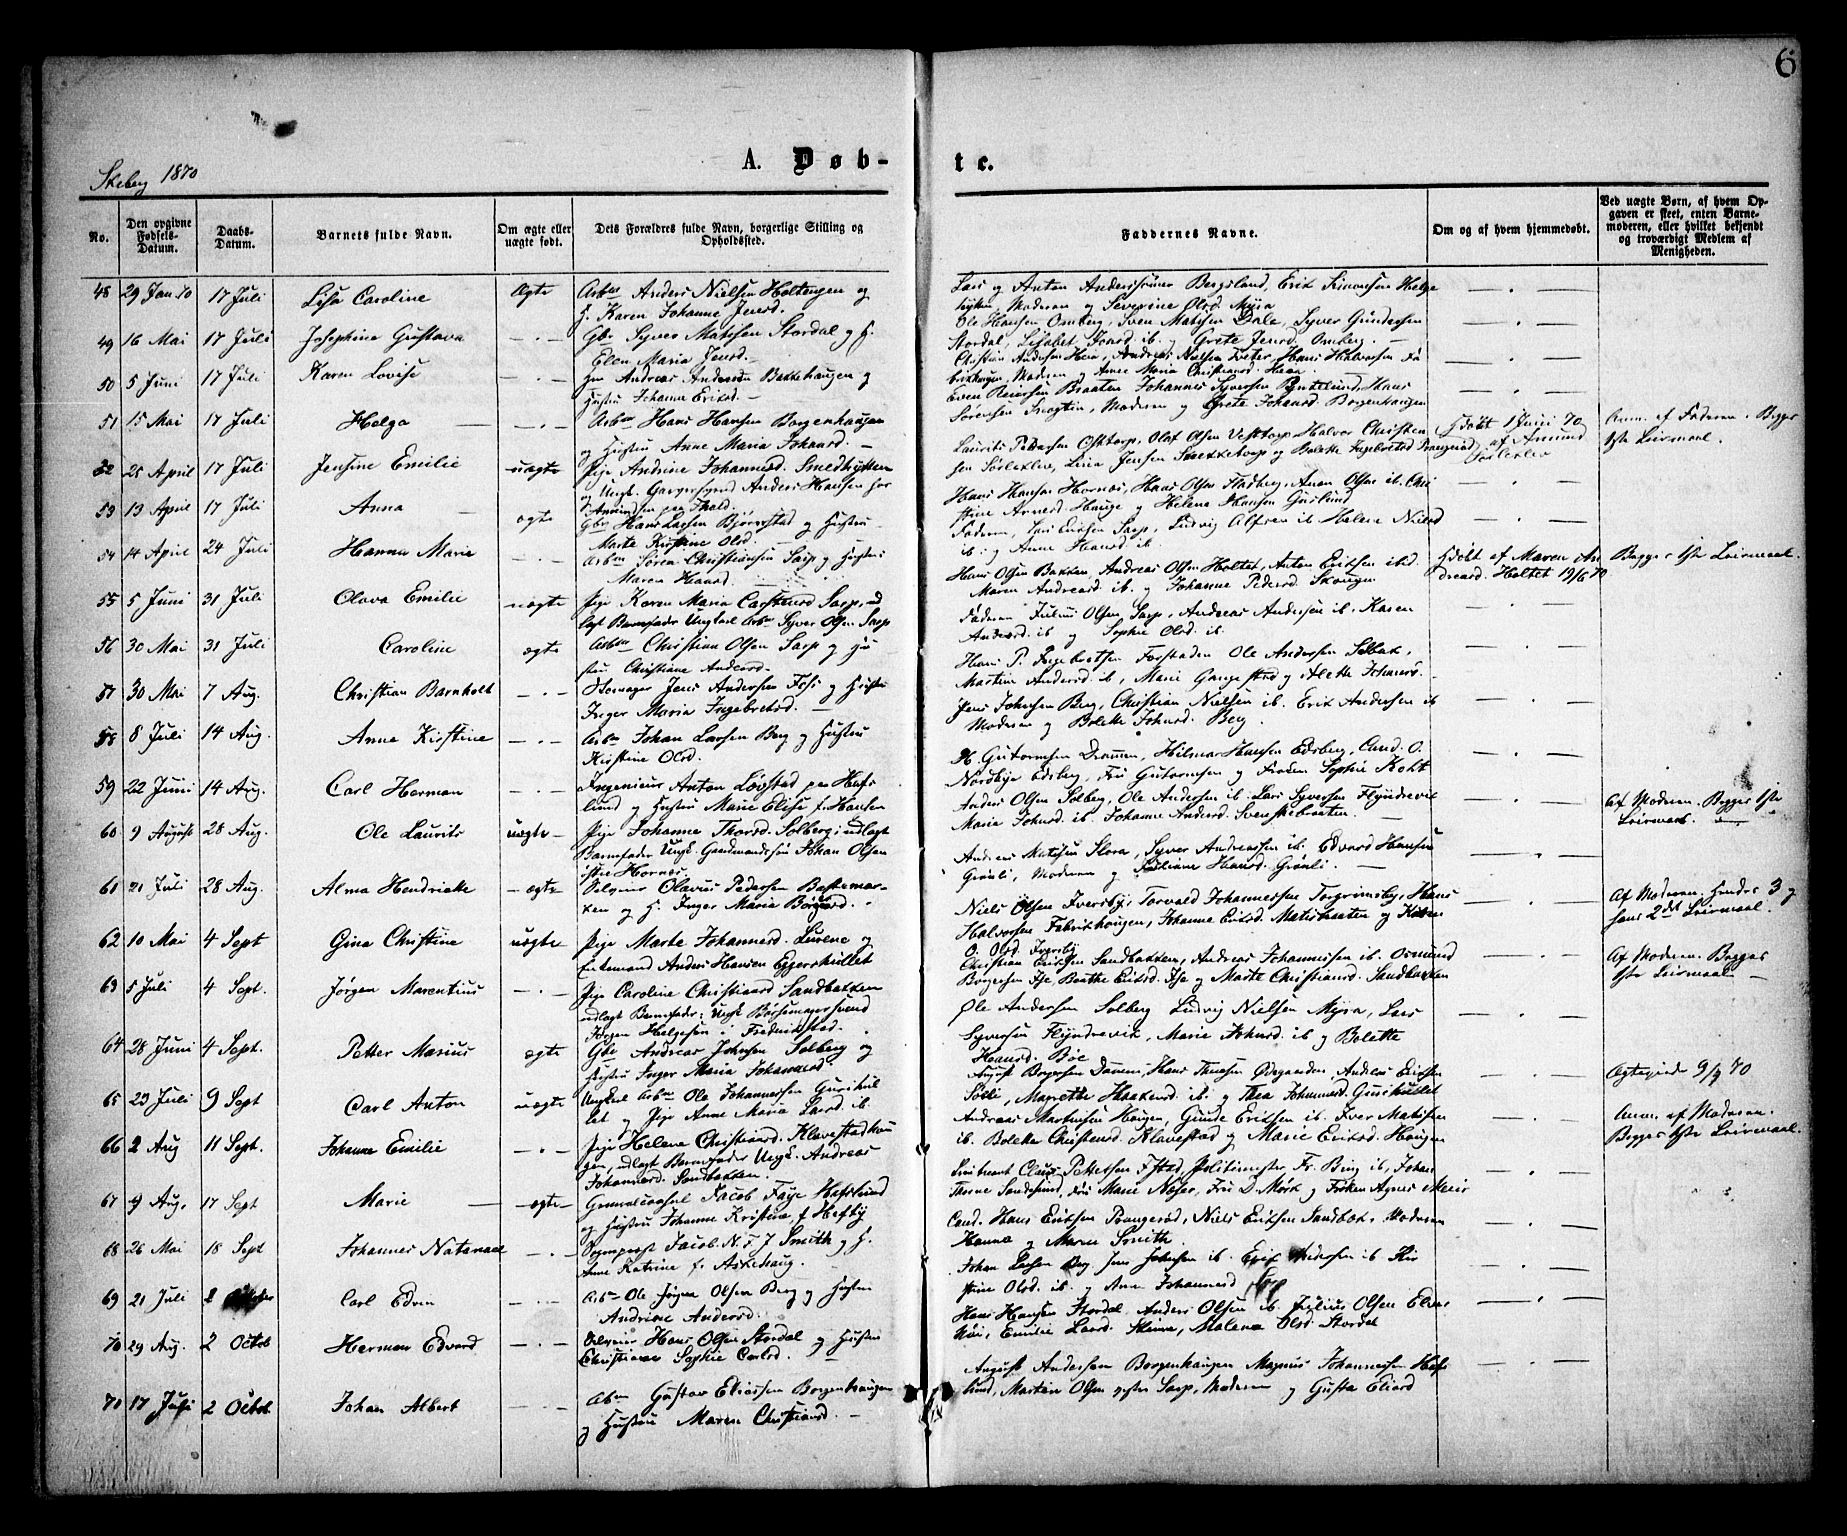 6
Skeberg 1870
A. Døb-
te.
No.
Den opgivne Fødsels-Datum.
Daabs-Datum.
Barnets fulde Navn.
Om ægte eller uægte født.
Dets Forældres fulde Navn, borgerlige Stilling og Opholdssted.
Faddernes Navne.
Om og af hvem hjemmedøbt.
Ved uægte Børn, af hvem Opgaven er skeet, enten Barnemoderen, eller hvilket bekjendt og troværdigt Medlem af Menigheden.
48 29 Jan 70 17 Juli Lisa Caroline Ægte Arbm Anders Nielsen Holtengen og
H. Karen Johanne Jensd.
Lars og Anton Anderssønner Bergsland, Erik Simonsen
Moderen og Severine Olsd Myra
49 16 Mai 17 Juli Josephine Gustava Gbr Syver Matisen Stordal og H.
Elen Maria Jensd.
Ole Hansen Omberg, Sven Matisen Dale, Syver Gundersen
Stordal, Lisabet Jensd. ib. og Grete Jensd. Omberg.
50 5 Juni 17 Juli Karen Lovise Andreas Andersen Bakkehaugen og
Hustru Johanne Eriksd.
Christian Andersen Heen, Andreas Nielsen, Hans Halvorsen Fa
brikhaugen, Moderen og Anne Maria Christiansd. Heen
51 15 Mai 17 Juli Helga Arbm Hans Hansen Borgenhaugen
og Hustru Anne Maria Johansd.
Even Reiersen Braaten Johannes Syversen, Hans
Sørensen, Moderen og Grete Johansd. Borgenhaugen
52 28 April 17 Juli Jensine Emilie uægte Pige Andrine Johannesd. Smedhytten
og Ungk. Garversvend Anders Hansen hos
Laurits Pedersen Osttorp, Olaf Olsen Vesttorp Halvor Christen
sen Sørlexlev, Lina Jensen og Bolette Ingebretsd
Hdøbt 1 Juni 70
af Amund
Anm. af Faderen. Begges
1ste Leiermaal.
53 13 April 17 Juli Anna ægte Gbr Hans Larsen Bjørnstad og Hustru
Marte Kirstine Olsd.
Hans Hansen Hornes, Hans Olsen, Anton Olsen ib. Chri
stine Arnesd. Hauge og Helene Hansen Grøslund
54 14 April 24 Juli Hanna Marie Arbm Søren Christiansen Sarp og Hustru
Maren Hansd.
Faderen, Lars Larsen Sarp, Ludvig Olsen ib Helene Nielsd
ib. og Anne Hansd ib.
55 5 Juni 31 Juli Olava Emilie uægte Pige Karen Maria Carstensd Sarp, ud
lagt Barnefader Ungkarl Arbm Syver Olsen Sarp
Hans Olsen Bakken, Andreas Olsen Holtet, Anton Eriksen ibd.
Maren Andreasd ib. og Johanne Pedersd. Skougen
Hdøbt af Maren An
dreasd. Holtet 19/6 70
Begges 1ste Leiermaal.
56 30 Mai 31 Juli Caroline ægte Arbm Christian Olsen Sarp og Hu
stru Christiane Andersd.
Faderen Julius Olsen Sarp, Andreas Andersen ib. Karen
Andersd. ib og Sophie Olsd. ib.
57 30 Mai 7 Aug. Christian Barnholt Skomager Jens Andersen Fosi og Hustru
Inger Maria Ingebretsd.
Hans P. Ingebretsen Forstaden Ole Andersen Selbak,
Martine Andersd ib, Marie Gangestad og Alette Johansd.
58 8 Juli 14 Aug. Anne Kirstine Arbm Johan Larsen Berg og Hustru
Kirstine Olsd.
Jens Johnsen Berg, Christian Nielsen ib. Erik Andersen ib
Moderen og Bolette Johnsd. Berg.
59 22 Juni 14 Aug. Carl Herman Ingenieur Anton Løgstad paa Hafs
lund og Hustru Marie Elise f. Hansen
H. Guttormsen Drammen, Hilmar Hansen Edsberg, Cand. O.
Nordbye Edsberg, Fru Guttormsen og Frøken Sophie Koht
60 9 August 28 Aug. Ole Laurits uægte Pige Johanne Thorsd. Solberg; udlagt
Barnefader Ungk. Gaardmandssøn Johan Olsen
østre Hornes.
Anders Olsen Solberg, Ole Andersen ib. Lars Syversen Flyndrevik
Maria Johnsd ib. Johanne Andersd. Svenskebraaten.
Af Moderen. Begges 1ste
Leiermaal.
61 21 Juli 28 Aug. Alma Hendrikke ægte Olavus Pedersen Bastemar-
ken og H. Inger Maria Børgersd.
Andreas Matisen Slora, Syver Andreassen ib. Edvard Hansen
Grønli, Moderen og Juliane Hansd. Grønli.
62 10 Mai 4 Sept Gina Christine uægte Pige Marte Johannesd. Lurene og
Enkemand Anders Hansen Eggerskillet
Niels Olsen Iversby, Torvald Johannessen Torgrimsby, Hans
Halvorsen Fabrikhaugen, Johanne Eriksd. og Karen
O. Olsd Iversby
Af Moderen. Hendes 3 og
hans 2det Leiermaal.
63 5 Juli 4 Sept. Jørgen Marentius Pige Caroline Christiansd Sandbakken
udlagt Barnefader: Ungk Børsemagersvend
Jørgen Helgesen i Frederikstad.
Christian Eriksen Sandbakken, Andreas Johannessen ib. Osmund
Borgersen Ise Berthe Eriksd. Ise og Marte Christiansd. Sandbakken
Af Moderen. Begges
1ste Leiermaal
64 28 Juni 4 Sept. Petter Marius ægte Gbr Andreas Johnsen Solberg og
Hustru Inger Maria Johannesd.
Ole Andersen Solberg Ludvig Nielsen Myra, Lars
Syversen Flyndrevik, Marie Johnsd. ib og Bolette
Hansd. Bøe
65 23 Juli 9 Sept Carl Anton uægte Ungkarl Arbm Ole Johannesen Guriskul
let og Pige Anne Maria Larsd. ib.
August Borgersen, Hans Thuesen, Anders Eriksen
Solli, Magrethe Haakensd. ib. og Thea Johannesd. Guriskullet
Ægteviede 9/9 70
66 2 Aug 11 Sept. Johanne Emilie Pige Helene Christiansd. Klavestadhau
gen, udlagt Barnefader Ungk. Andreas
Johannesd. Sandbakken.
Andreas Martinsen Haugen, Gunde Eriksen ib. Iver Matisen
ib. Bolette Christensd. Klavestad og Marie Eriksd. Haugen
Anm. af Moderen.
Begges 1ste Leiermaal.
67 9 Aug. 17 Sept Marie ægte Generalconsul Jacob Faye Hafslund
og Hustru Johanne Kristine f. Hefty
Lieutnant Claus Pettersen, Politimester Fr. Bing ib, Johan
Thorne Sandesund, Marie Moser, Fru D. Mørk og Frøken Agnes Meier
68 26 Mai 18 Sept Johannes Natanael Sogneprest Jacob. N. F. J Smith og H.
Anne Katrine f. Askehaug.
Cand. Hans Eriksen Prangerød, Niels Eriksen Sandbæk, Moderen
Hanna og Maren Smith.
69 21 Juli 2 October Carl Edvin Arbm Ole Jørgen Olsen Berg og Hustru
Andrine Andersd.
Johan Larsen Berg Jens Johnsen ib. Erik Andersen ib. Kir
stine Olsd. ib. og Ane Johannesd
70 29 Aug. 2 Octob Herman Edvard Hans Olsen Stordal og Hustru
Christiane Sophie Carlsd.
Hans Hansen Stordal, Anders Olsen ib. Julius Olsen
Emilie Larsd., Malene Olsd. Stordal
70 17 Juli 2 Octob. Johan Albert Arbm Gustav Eliassen Borgenhaugen
og Hustru Maren Christiansd.
August Andersen Borgenhaugen Magnus Johannesen Hafs
lund, Martin Olsen Sarp, Moderen og Gusta Eliasd